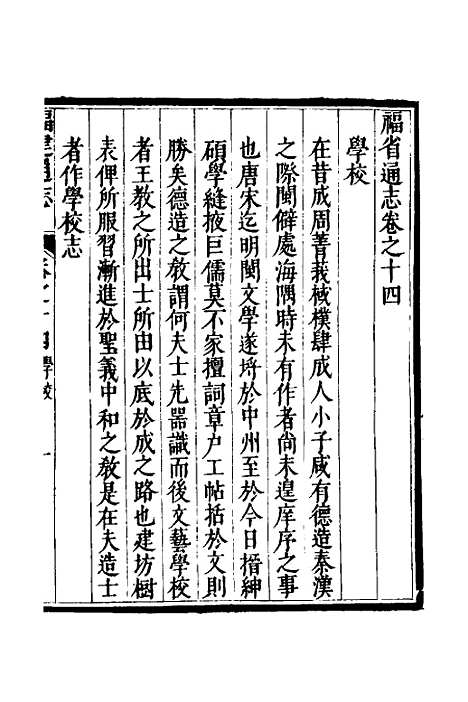 福省通志卷之十四
學校
在昔成周菁莪棫樸肆成人小子咸有德造秦漢
之際閩僻處海隅時未有作者尚未遑庠序之事
也唐宋迄明閩文學遂埓於中州至於今日搢紳
碩學縫掖巨儒莫不家擅詞章户工帖括於文則
勝矣德造之敎謂何夫士先器識而後文藝學校
者王教之所出士所由以底於成之路也建坊樹
表俾所服習漸進於聖義中和之敎是在夫造士
者作學校志
通志 卷之十四 學校 一